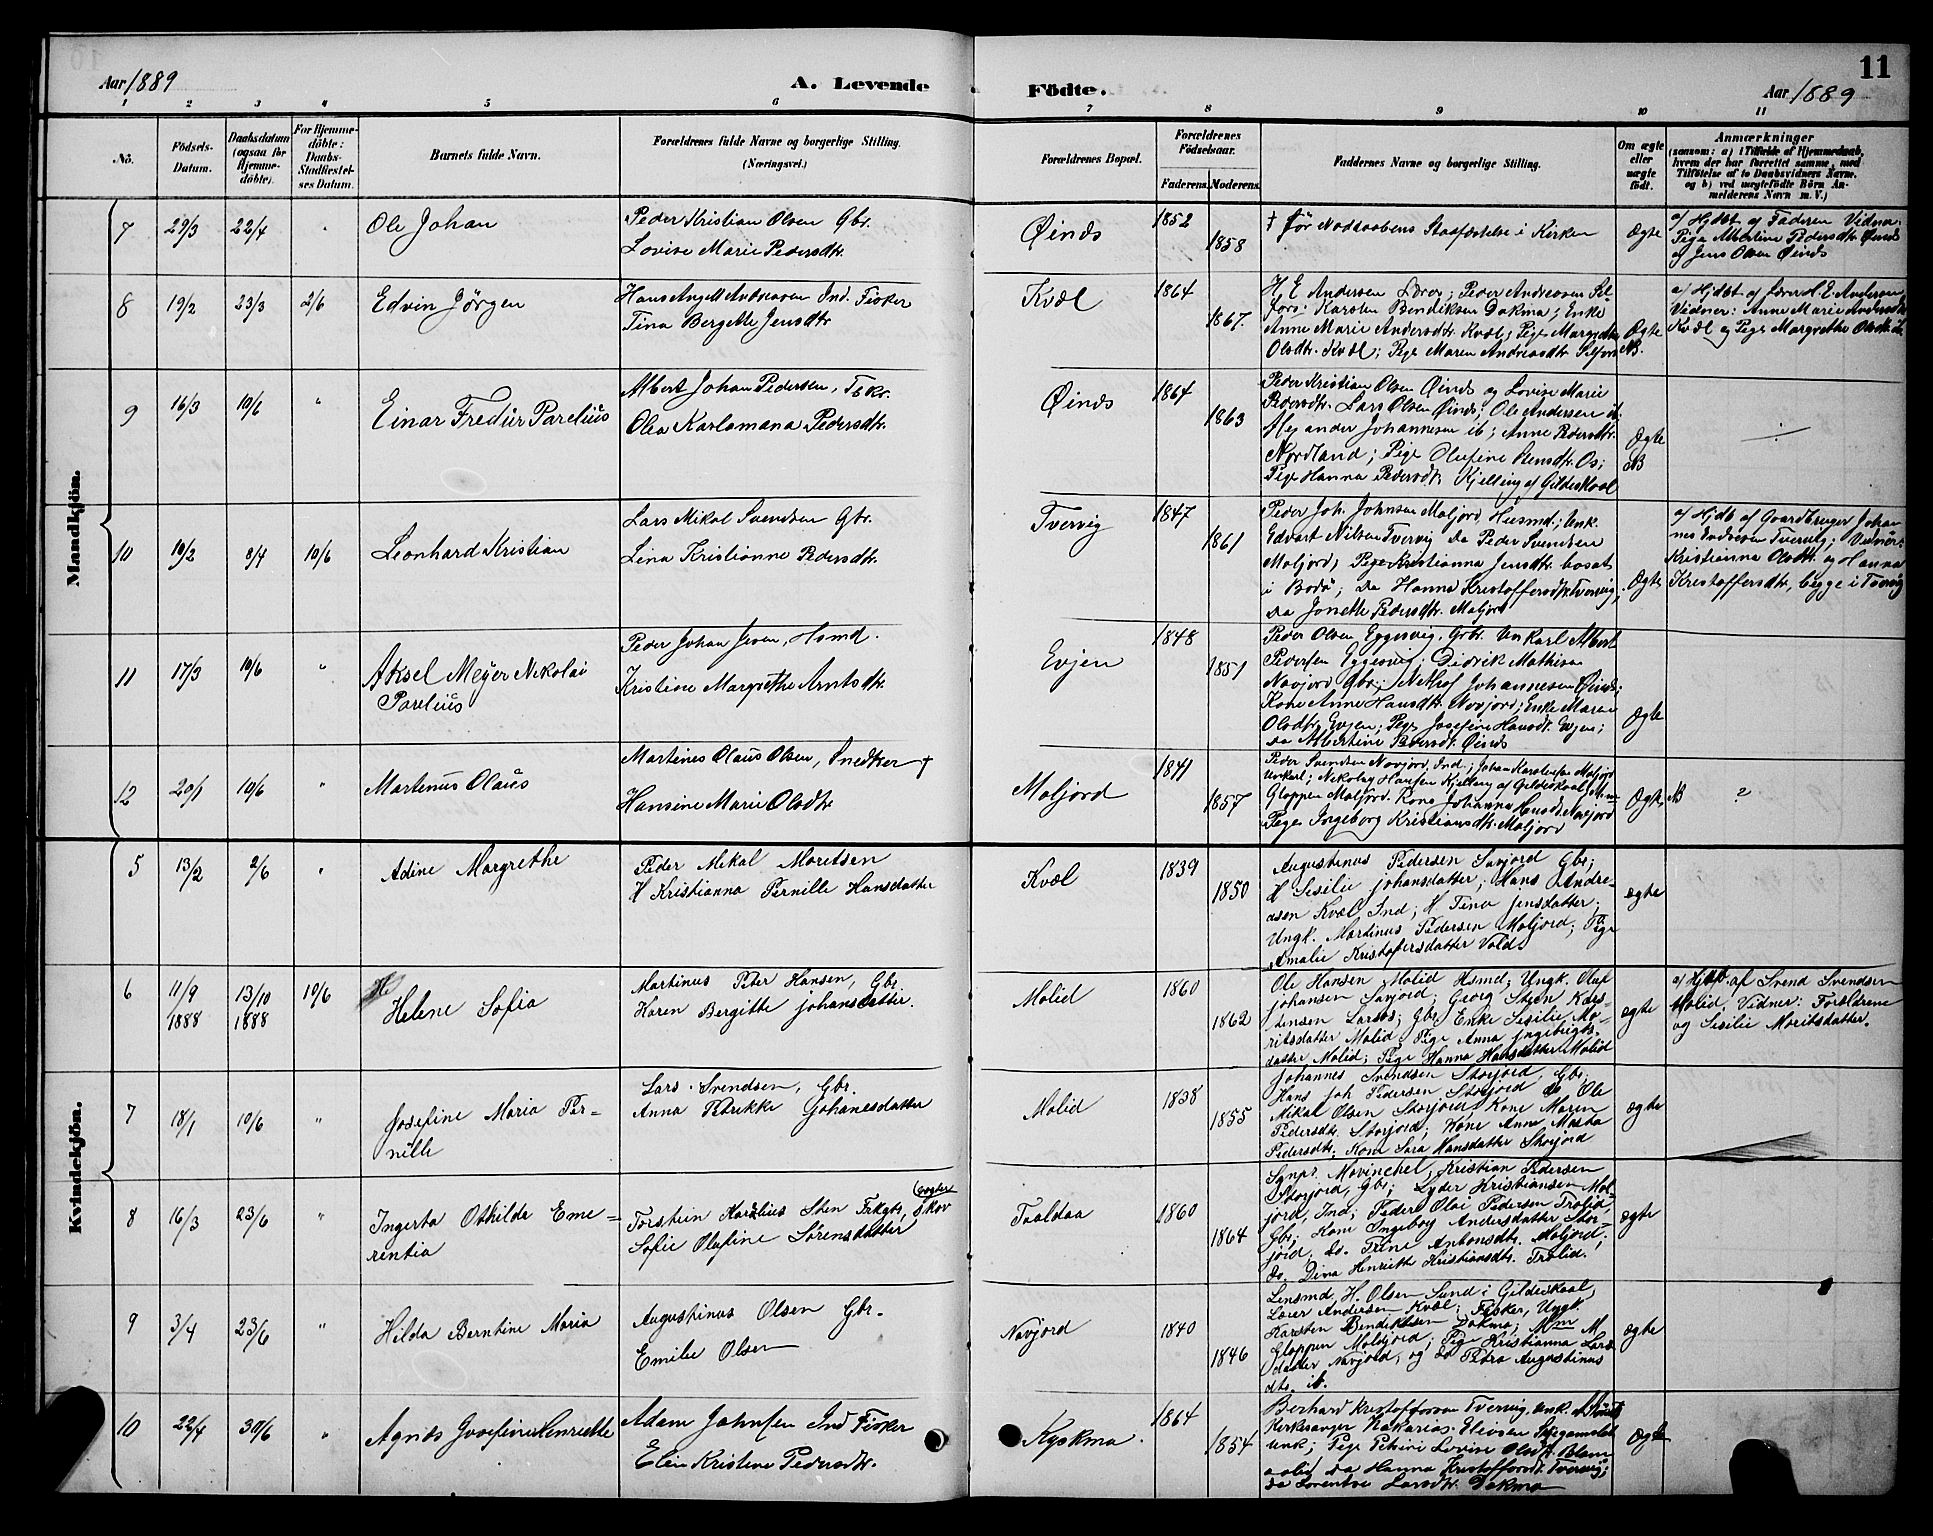 11
Aar 1889
A. Levende Födte.
Aar 1889
1 2 3 4 5 6 7 8 9 10 11
No.
Födsels-Datum.
Daabsdatum (ogsaa for Hjemme-döbte).
For Hjemme-döbte: Daabs-Stadfæstel-ses Datum.
Barnets fulde Navn.
Forældrenes fulde Navne og borgerlige Stilling. (Næringsvei.)
Forældrenes Bopæl.
Forældrenes Födselsaar.
Faderens. Moderens.
Faddernes Navne og borgerlige Stilling.
Om ægte eller uægte födt.
Anmærkninger
(saasom: a) i Tilfælde af Hjemmedaab, hvem der har forrettet samme, med Tilföielse af to Daabsvidners Navne, og b) ved uægtefödte Börn An-melderens Navn m. V.)
Mandkjön.
7 29/3 22/4 "
Ole Johan
Peder Kristian Olsen Gbr.
Lovise Marie Pedersdtr.
Øinds
1852
1858
† før Nøddaabens Stadfæstelse i Kirken
Ægte
a/ Hjdbt af Faderen Vidner:
Pige Albertine Pedersdtr. Øinds
og Jens Olsen Øinds
8 19/2 23/3 2/6
Edvin Jörgen
Hans Angell Andreasen Ind. Fisker
Tina Bergette Jensdtr
Kvæl
1864
1867.
H. E. Andersen Lærer; Peder Andreasen Sel-
fors; Karsten Bendiksen Dakma; Enke
Anne Marie Andersdtr. Kvæl; Pige Margrethe
Olsdtr. Kvæl; Pige Maren Andreasdtr Selfors
Ægte
NB.
a/ Hjdbt af Lærer H. E. Andersen
Vidner: Anne Marie Andersdtr
Kvæl og Pige Margrethe Olsdtr ib
9 16/3 10/6 "
Einar Fredür Pareliüs
Albert Johan Pedersen, Fskr.
Olea Karlamana Pedersdtr.
Øinds
1864
1863
Peder Kristian Olsen Øinds og Lovise Marie
Pedersdtr. Lars Olsen Øinds; Ole Andersen ib.
Alexander Johannesen ib; Anne Pedersdtr.
Nordland; Pige Olufine Stensdtr. Os;
Pige Hanna Pedersdt. Kjelling af Gildeskaal
Ægte
NB
10 19/2 8/4 10/6
Leonhard Kristian
Lars Mikal Svendsen Gbr.
Lina Kristianne Pedersdtr.
Tvervig
1847
1861
Peder Joh. Johnsen Moljord Husmd; Unk.
Edvart Nilsen Tvervig Do Peder Svendsen
Moljord; Pige Kristianna Jensdtr. bosat
i Bodö; Do Hanna Kristoffersdtr Tvervig;
Do Jonette Pedersdtr. Moljord
Ægte
a/ Hjdbt af Gaardbruger Johan-
nes Endresen Tvervig; Vidner:
Kristianna Olsdtr. og Hanna
Kristoffersdtr, begge i Tvervig
11 17/3 10/6 "
Aksel Meyer Nikolai
Pareliüs
Peder Johan Jesen, Hsmd.
Kristine Margrethe Arntsdtr.
Evjen
1848
1851
Peder Olsen Eggesvig. Grbr. Unkarl Albert
Pedersen Eggesvig; Didrik Mathisen
Novjord Gbr; Johannesen Øinds;
Kone Anne Hansdtr. Novjord; Enke Maren
Olsdtr. Evjen; Pige Josefine Hansdt. Evjen;
Do Albertine Pedersdt. Øinds
Ægte
12 20/1 10/6 "
Martenüs Olaüs
Martines Olaus Olsen, Snedker †
Hansine Marie Olsdtr
Moljord
1841
1857
Peder Svendsen Novjord, Ind.; Johan Karolinsen Moljord
Unkarl; Nikolay Hansen Kjelling af Gildeskaal, Mm
Gloppen Moljord. Kone Johanna Hansdt. Novjord
Pige Ingeborg Kristiansdt. Moljord
Ægte NB
?
Kvindekjön.
5 13/2 2/6 "
Adine Margrethe
Peder Mikal Moretsen
H Kristianna Pernille Hansdatter
Kvæl
1839
1850
Augustinus Pedersen Savjord Gbr;
H Sesilie Johansdatter; Hans Andre-
asen Kvæl Ind; H. Tina Jensdatter;
Ungk. Martinus Pedersen Moljord; Pige
Amalie Kristofersdatter Vold.
ægte
6 11/9 1888 13/10 1888 10/6
Helene Sofia
Martinus Peter Hansen, Gbr.
Karen Bergitte Johansdatter.
Molid
1860
1862
Ole Hansen Molid Hsmd; Ungk. Oluf
Johansen Savjord; Georg Steen Kars-
tensen Larsos; Gbr. Enke Sesilie Mo-
ritsdatter Molid; Pige Anna Ingebrigts-
datter Molid; Pige Hanna Hansdatter Molid
ægte
a/ Hjdbt. af Svend Svendsen
Molid. Vidner: Foreldrene
og Sesilie Moritsdatter.
7 18/1 10/6 "
Josefine Maria Per-
nille
Lars Svendsen, Gbr.
Anna Petrikke Johanesdatter
Molid
1838
1855
Johannes Svendsen Storjord, Gbr.
Hans Joh Pedersen Storjord do Ole
Mikal Olsen Storjord Kone Maren
Pedersdtr. Storjord; Kone Anne Marta
Pedersdtr; Kone Sara Hansdatter Storjord
ægte
8 16/3 23/6 "
Ingerta Othilde Eme-
rentia
Torstein Karelius Sten Frkgbr, Skov (vogter
Sofie Olufine Sörensdatter
Taaldaa
1860
1864
Kristian Pedersen
Storjord, Gbr; Lyder Kristiansen Mol-
jord, Ind; Peder Olai Pedersen Trolid,
Gbr; Kone Ingeborg Andersdatter Stor-
jord, do. Trine Antonsdtr. Moljord;
do. Dina Henriette Kristiansdtr. Trolid.
ægte
9 3/4 23/6 "
Hilda Berntine Maria
Augustinus Olsen Gbr.
Emilie Olsen
Novjord
1840
1846
Lensmd. H. Olsen Sund i Gildeskaal,
Lærer Andersen Kvæl; Fisker, Ungk.
Karsten Bendiktsen Dakma; Mm M
Gloppen Moldjord; Pige Kristianna Lars
datter Novjord, og do Petra Augustinus
dtr. ib.
ægte
10 22/4 30/6 "
Agnes Josefine Henriette
Adam Johnsen Ind Fisker
Elen Kristine Pedersdtr.
Kyskma.
1864
1854
Berhard Kristoffersen Tvervig, Unk.
Kirkesanger Zakarias Eliesen
unk; Pige Petrine Lovise Olsdt.
Do Hanna Kristoffersdt. Tvervig;
Do Lorentse Larsdtr. Dakma
Ægte